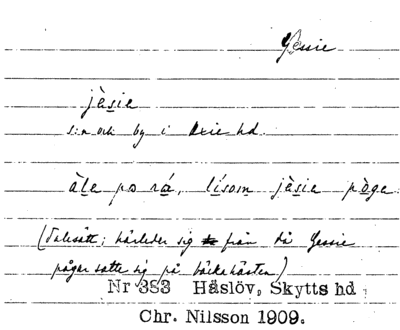 Gessie
jèsie
s:n och by i Oxie hd.
àle po rá, lísom jèsie pòga
(Talesätt; härleder sig från då Gessie
pågar satte sig på bäckahästen)
Nr 383 Häslöv, Skytts hd.
Chr. Nilsson 1909.